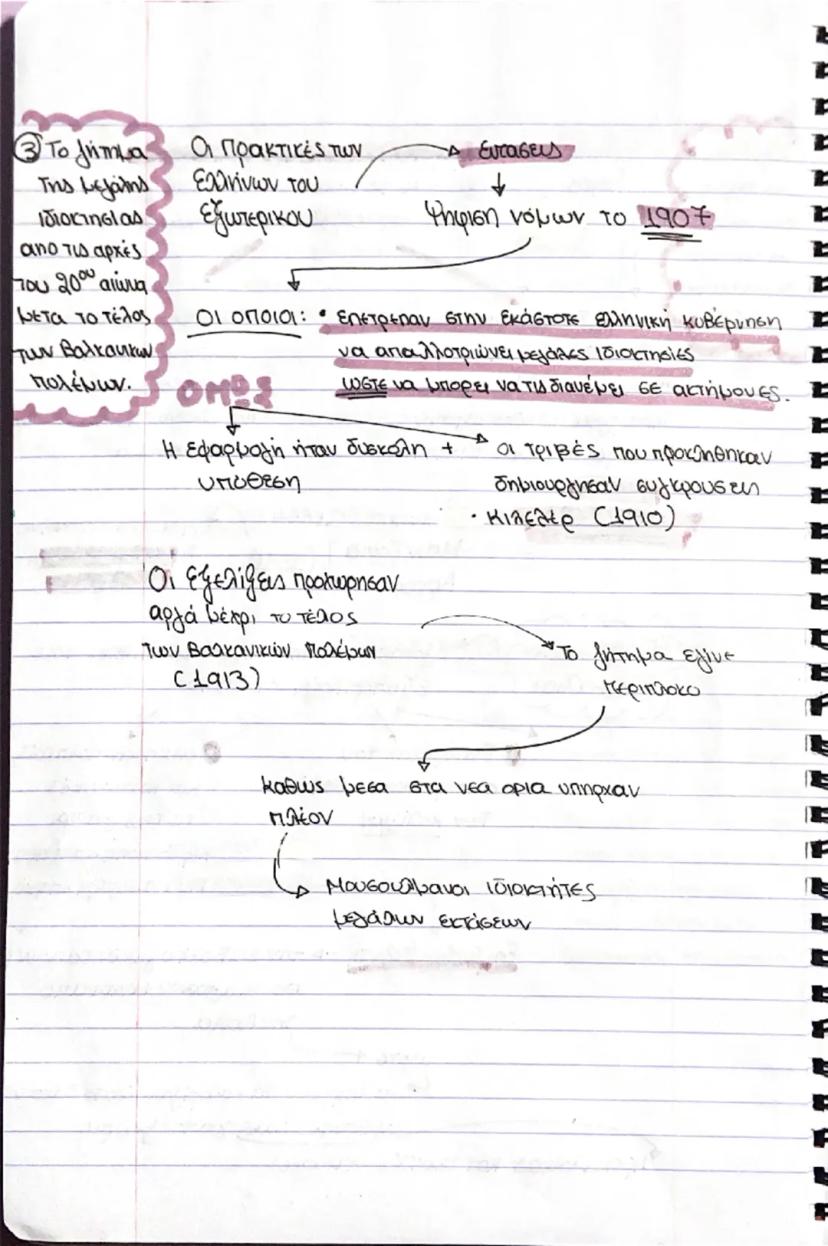 ③ Το ζήτημα
της μεγάλης
ιδιοκτησίας
από τις αρχές
του 20ου αιώνα
μετα το τέλος
των Βαλκανικών
πολέμων.
Οι πρακτικές των
Ελλήνων του
Εξωτερικού
εντάσεις
Ψήφιση νόμων το 1907
Οι οποίοι: • επέτρεπαν στην εκάστοτε ελληνική κυβέρνηση
να απαλλοτριώνει μεγάλες ιδιοκτησίες
ώστε να μπορεί να τις διανέμει σε ακτήμονες.
ΟΜΩΣ
Η εφαρμογή ήταν δύσκολη +
υπόθεση
οι τριβές που προκλήθηκαν
δημιούργησαν συγκρούσεις
• Κιλελέρ (1910)
Οι εξελίξεις προχώρησαν
αργά μέχρι το τέλος
των Βαλκανικών πολέμων
(1913)
Το ζήτημα έγινε
περίπλοκο
καθώς μέσα στα νέα όρια υπήρχαν
πλέον
Μουσουλμάνοι ιδιοκτήτες
μεγάλων εκτάσεων